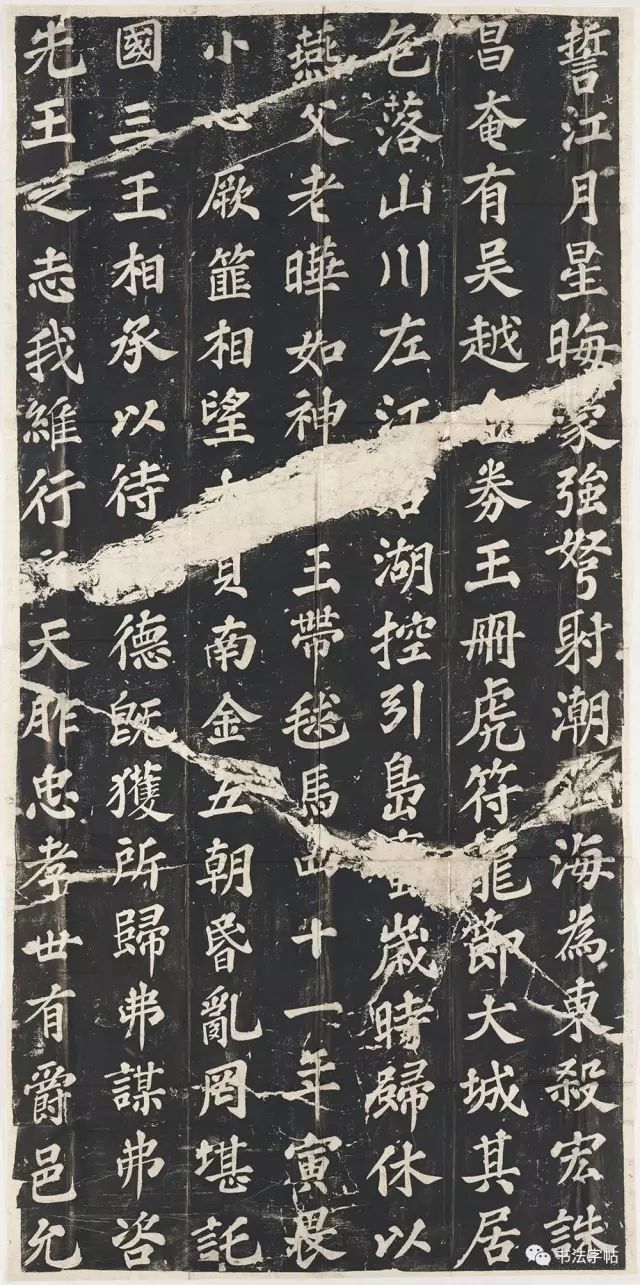 誓江月星晦蒙強弩射潮海為東殺宏誅
昌奄有吳越金券玉冊虎符龍節大城其居
包落山川左江湖控引島蠻歲時歸休以
燕父老曄如神玉帶毬馬四十一年寅畏
小心厥篚相望大貝南金五朝昏亂罔堪託
國三王相承以待德既獲所歸弗謀弗咨
先王之志我維行之天胙忠孝世有爵邑允
书法字帖